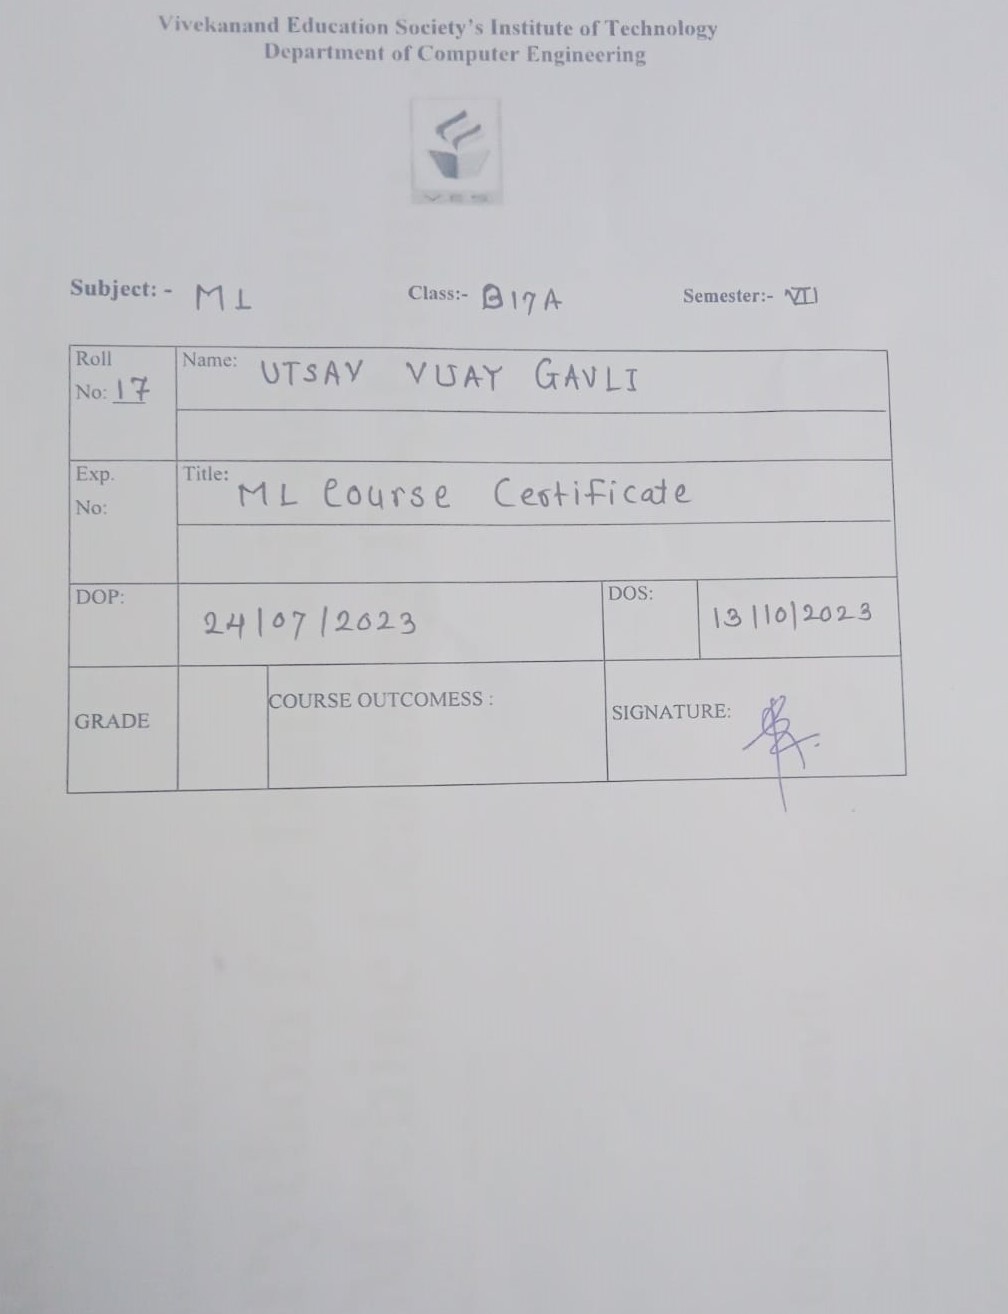 Vivekanand Education Society's Institute of Technology
Department of Computer Engineering
V E S
Subject: - ML Class:- B17A Semester:- VII
Roll No: 17
Name: UTSAV VIJAY GAVLI
Exp. No:
Title: ML Course Certificate
DOP: 24/07/2023
DOS: 13/10/2023
GRADE
COURSE OUTCOMESS :
SIGNATURE: